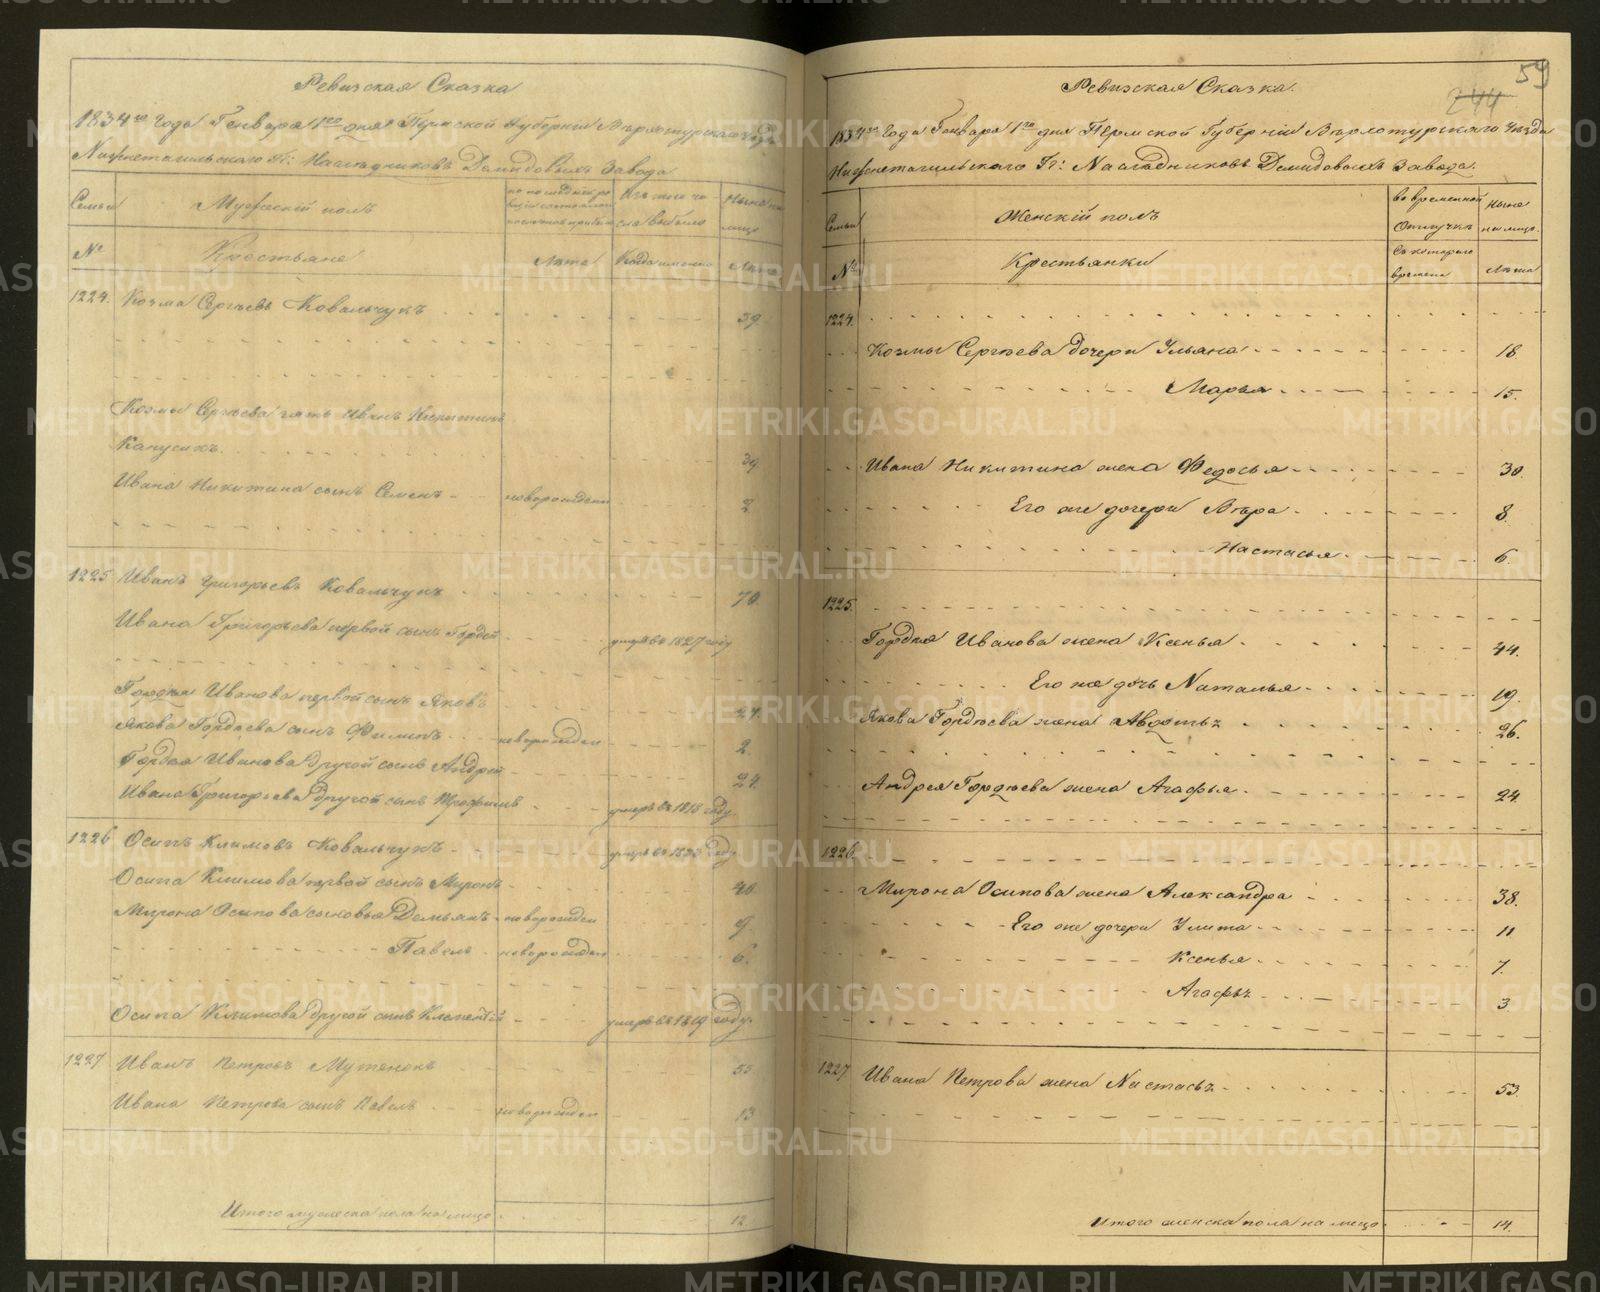 Ревизская Сказка
1834го Года Генваря 1го дня Пермской Губернiи Верхотурскаго уезда
Нижнетагильскаго Гг: Наследниковъ Демидовыхъ Завода.
Семьи
Мужескiй полъ
по последней ре
визiи состояло и
после оной прибыло
Изъ того чи-
сла выбыло
Ныне на
лицо
№
Крестьяне
Лета
Когда именно
Лета
1224. Козма Сергеевъ Ковальчукъ 39
Козмы Сергеева зять Иванъ Никитинъ
Капусикъ. 39
Ивана Никитина сынъ Семенъ новорожден 2
1225 Иванъ Григорьевъ Ковальчукъ 70
Ивана Григорьева первой сынъ Гордей умеръ въ 1827 году
Гордея Иванова первой сынъ Яковъ 27.
Якова Гордеева сынъ Филипъ новорожден 2.
Гордея Иванова другой сынъ Андрей 24.
Ивана Григорьева другой сынъ Трофимъ умеръ въ 1818 году.
1226 Осипъ Климовъ Ковальчукъ умеръ въ 1833 году
Осипа Климова первой сынъ Миронъ 40.
Мирона Осипова сыновья Демьянъ новорожден 9.
Павелъ новорожден 6.
Осипа Климова другой сынъ Клементiй умеръ въ 1819 году.
1227 Иванъ Петровъ Мутенокъ 55
Ивана Петрова сынъ Павелъ новорожден 13
Итого мужеска пола на лицо 12
59
244
Ревизская Сказка.
1834го Года Генваря 1го дня Пермской Губернiи Верхотурскаго Уезда
Нижнетагильскаго Гг: Наследниковъ Демидовыхъ Завода.
Семьи
Женскiй полъ
во временной
Отлучке
Ныне
на лицо.
№
Крестьянки
Съ котораго
времени
Лета
1224.
Козмы Сергеева дочери Ульяна 18.
Марья 15.
Ивана Никитина жена Федосья 30.
Его же дочери Вера 8.
Настасья 6.
1225.
Гордея Иванова жена Ксенья 44.
Его же дочь Наталья 19.
Якова Гордеева жена Авдотья 26.
Андрея Гордеева жена Агафья 24.
1226.
Мирона Осипова жена Александра 38.
Его же дочери Улита 11
Ксенья 7.
Агафья 3
1227 Ивана Петрова жена Настасья 53.
Итого женска пола на лицо 14.
METRIKI.GASO-URAL.RU